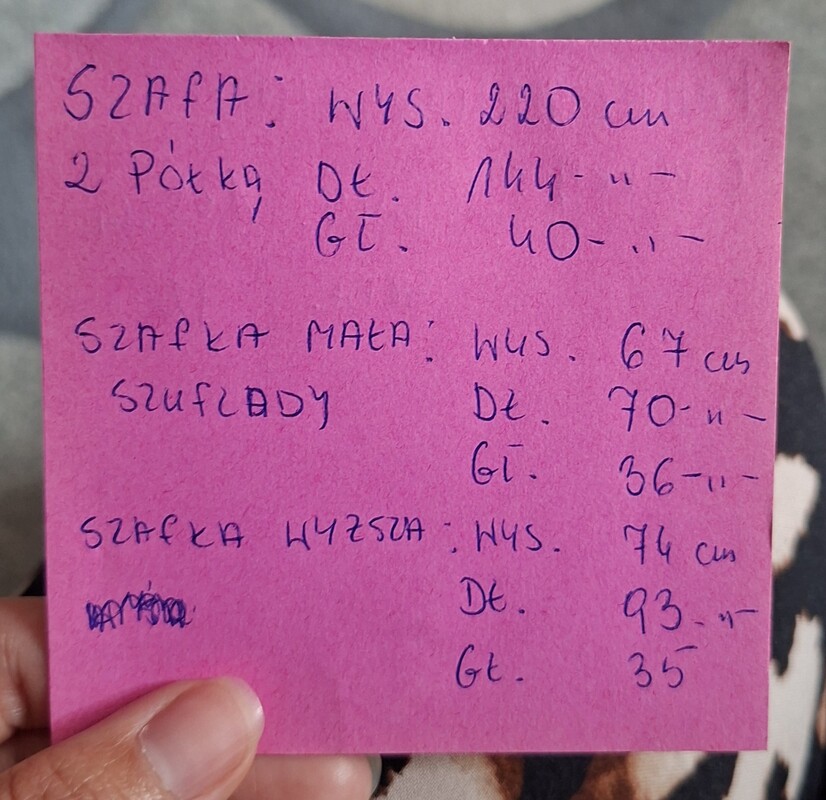 SZAFA: WYS. 220 cm
2 PÓŁKĄ DŁ. 144-"-
GŁ. 40-"-
SZAFKA MAŁA: WYS. 67 cm
SZUFLADY DŁ. 70-"-
GŁ. 36-"-
SZAFKA WYZSZA: WYS. 74 cm
DŁ. 93-"-
GŁ. 35